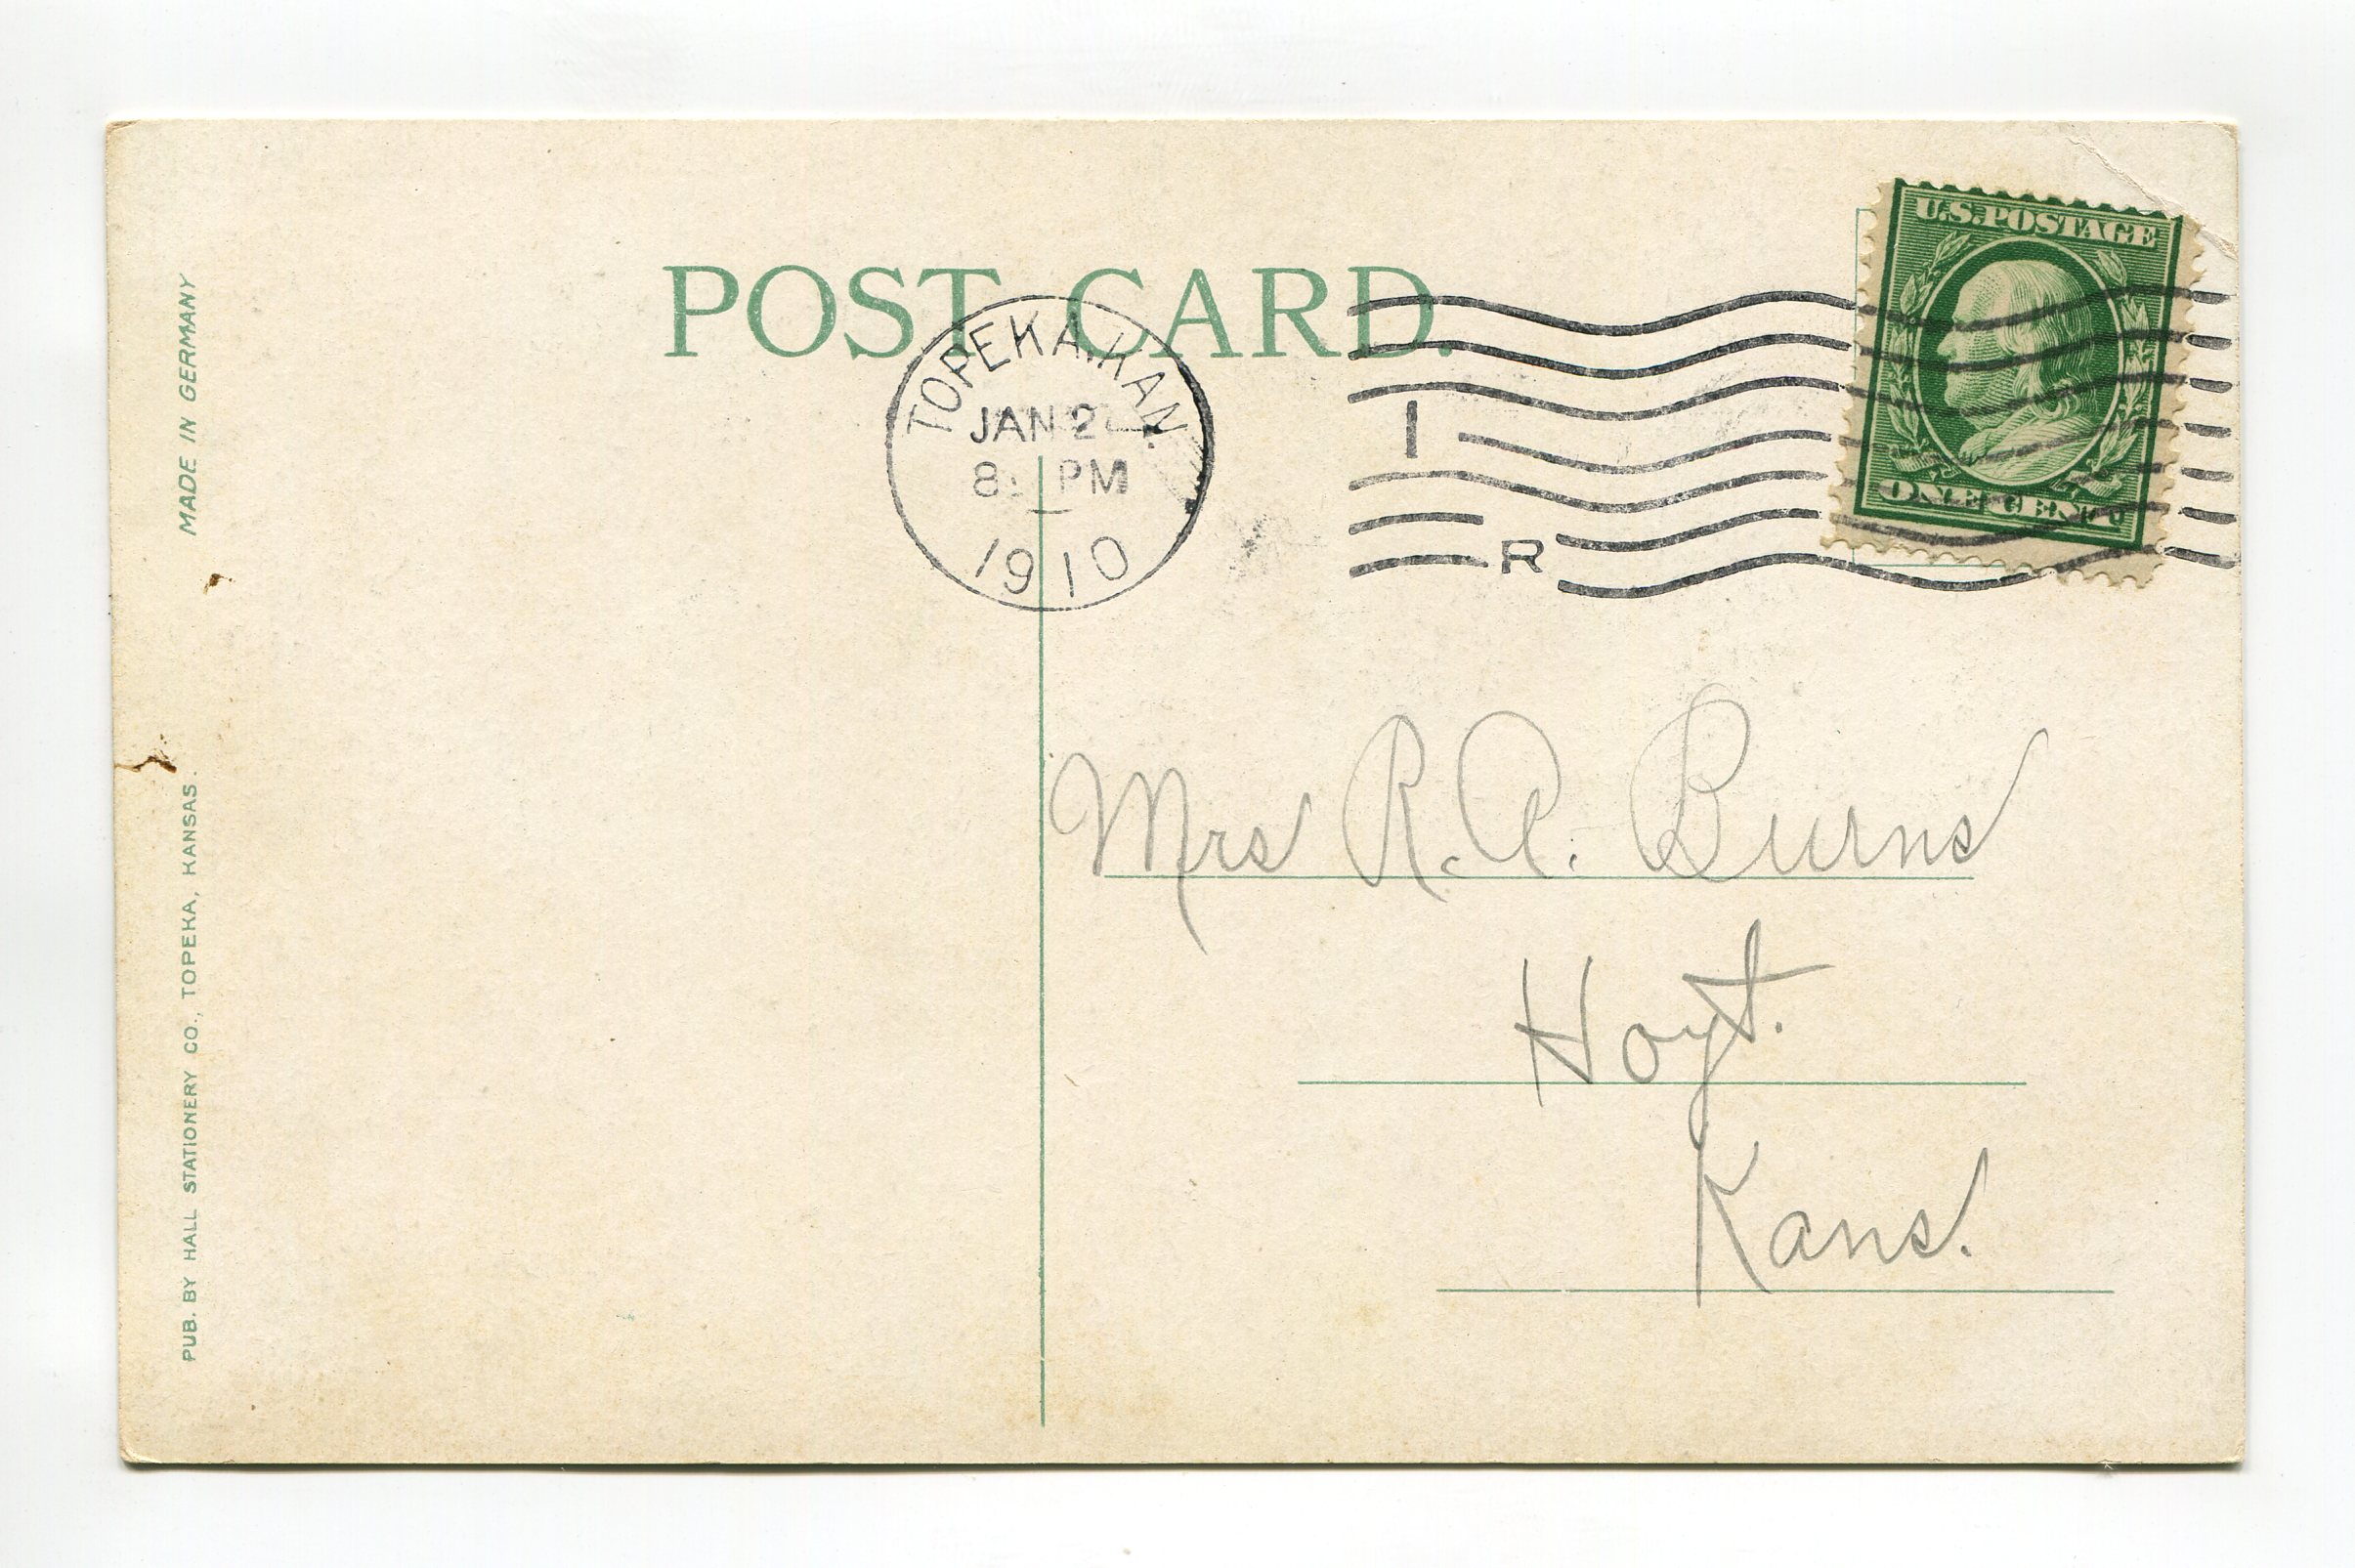 POST CARD.
MADE IN GERMANY
PUB. BY HALL STATIONERY CO., TOPEKA, KANSAS.
TOPEKA, KAN.
JAN 2
8 PM
1910
1
R
U.S. POSTAGE
ONE CENT
Mrs R. A. Burns
Hoyt.
Kans.